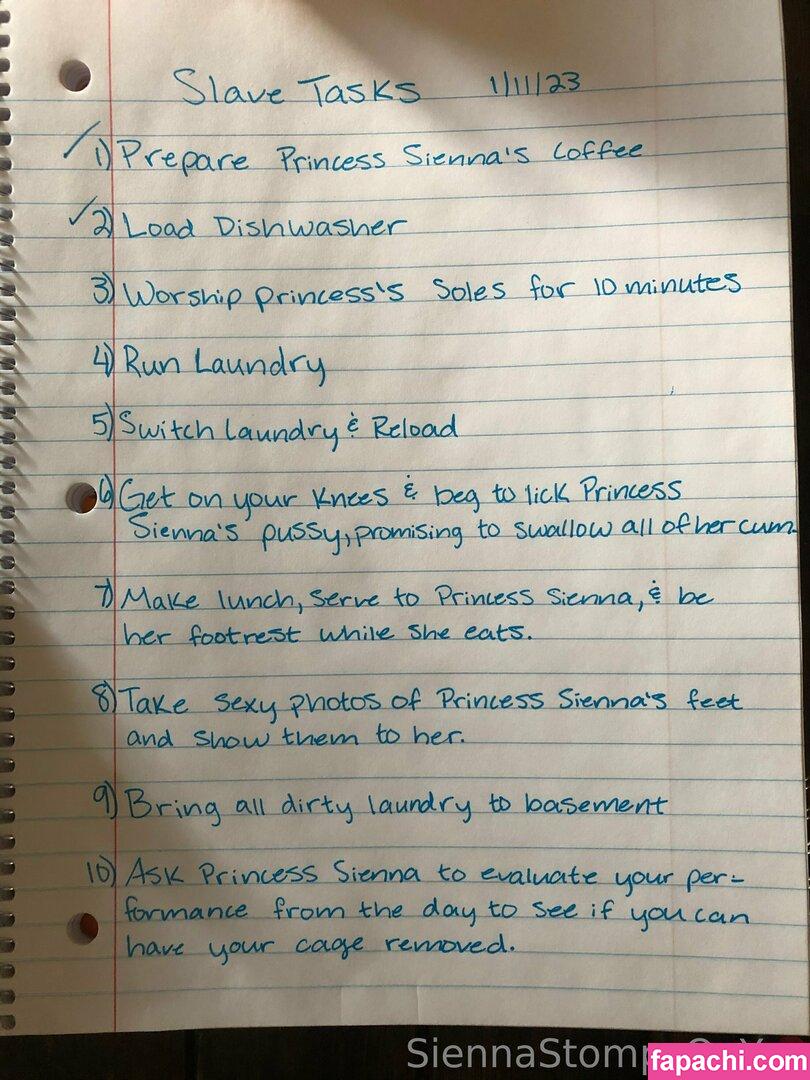 Slave Tasks 1/11/23
1) Prepare Princess Sienna's Coffee
2) Load Dishwasher
3) Worship princess's Soles for 10 minutes
4) Run Laundry
5) Switch laundry & Reload
6) Get on your knees & beg to lick Princess
Sienna's pussy, promising to swallow all of her cum.
7) Make lunch, serve to Princess Sienna, & be
her footrest while she eats.
8) Take sexy photos of Princess Sienna's feet
and show them to her.
9) Bring all dirty laundry to basement
10) Ask Princess Sienna to evaluate your per-
formance from the day to see if you can
have your cage removed.
fapachi.com